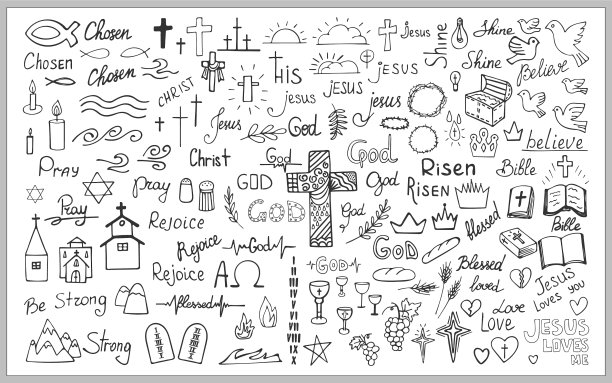 Chosen
Chosen
Chosen
CHRIST
Jesus
HIS
jesus
JESUS
Jesus
JESUS
jesus
Shine
Shine
Shine
Believe
believe
God
Christ
God
GOD
GOD
God
God
God
GOD
Risen
RISEN
Bible
Bible
Pray
Pray
pray
Rejoice
Rejoice
Rejoice
God
GOD
ΑΩ
blessed
Blessed
loved
blessed
Be Strong
Strong
I
II
III
IV
V
VI
VII
VIII
IX
X
Love
Love
Jesus
loves you
JESUS
LOVES
ME